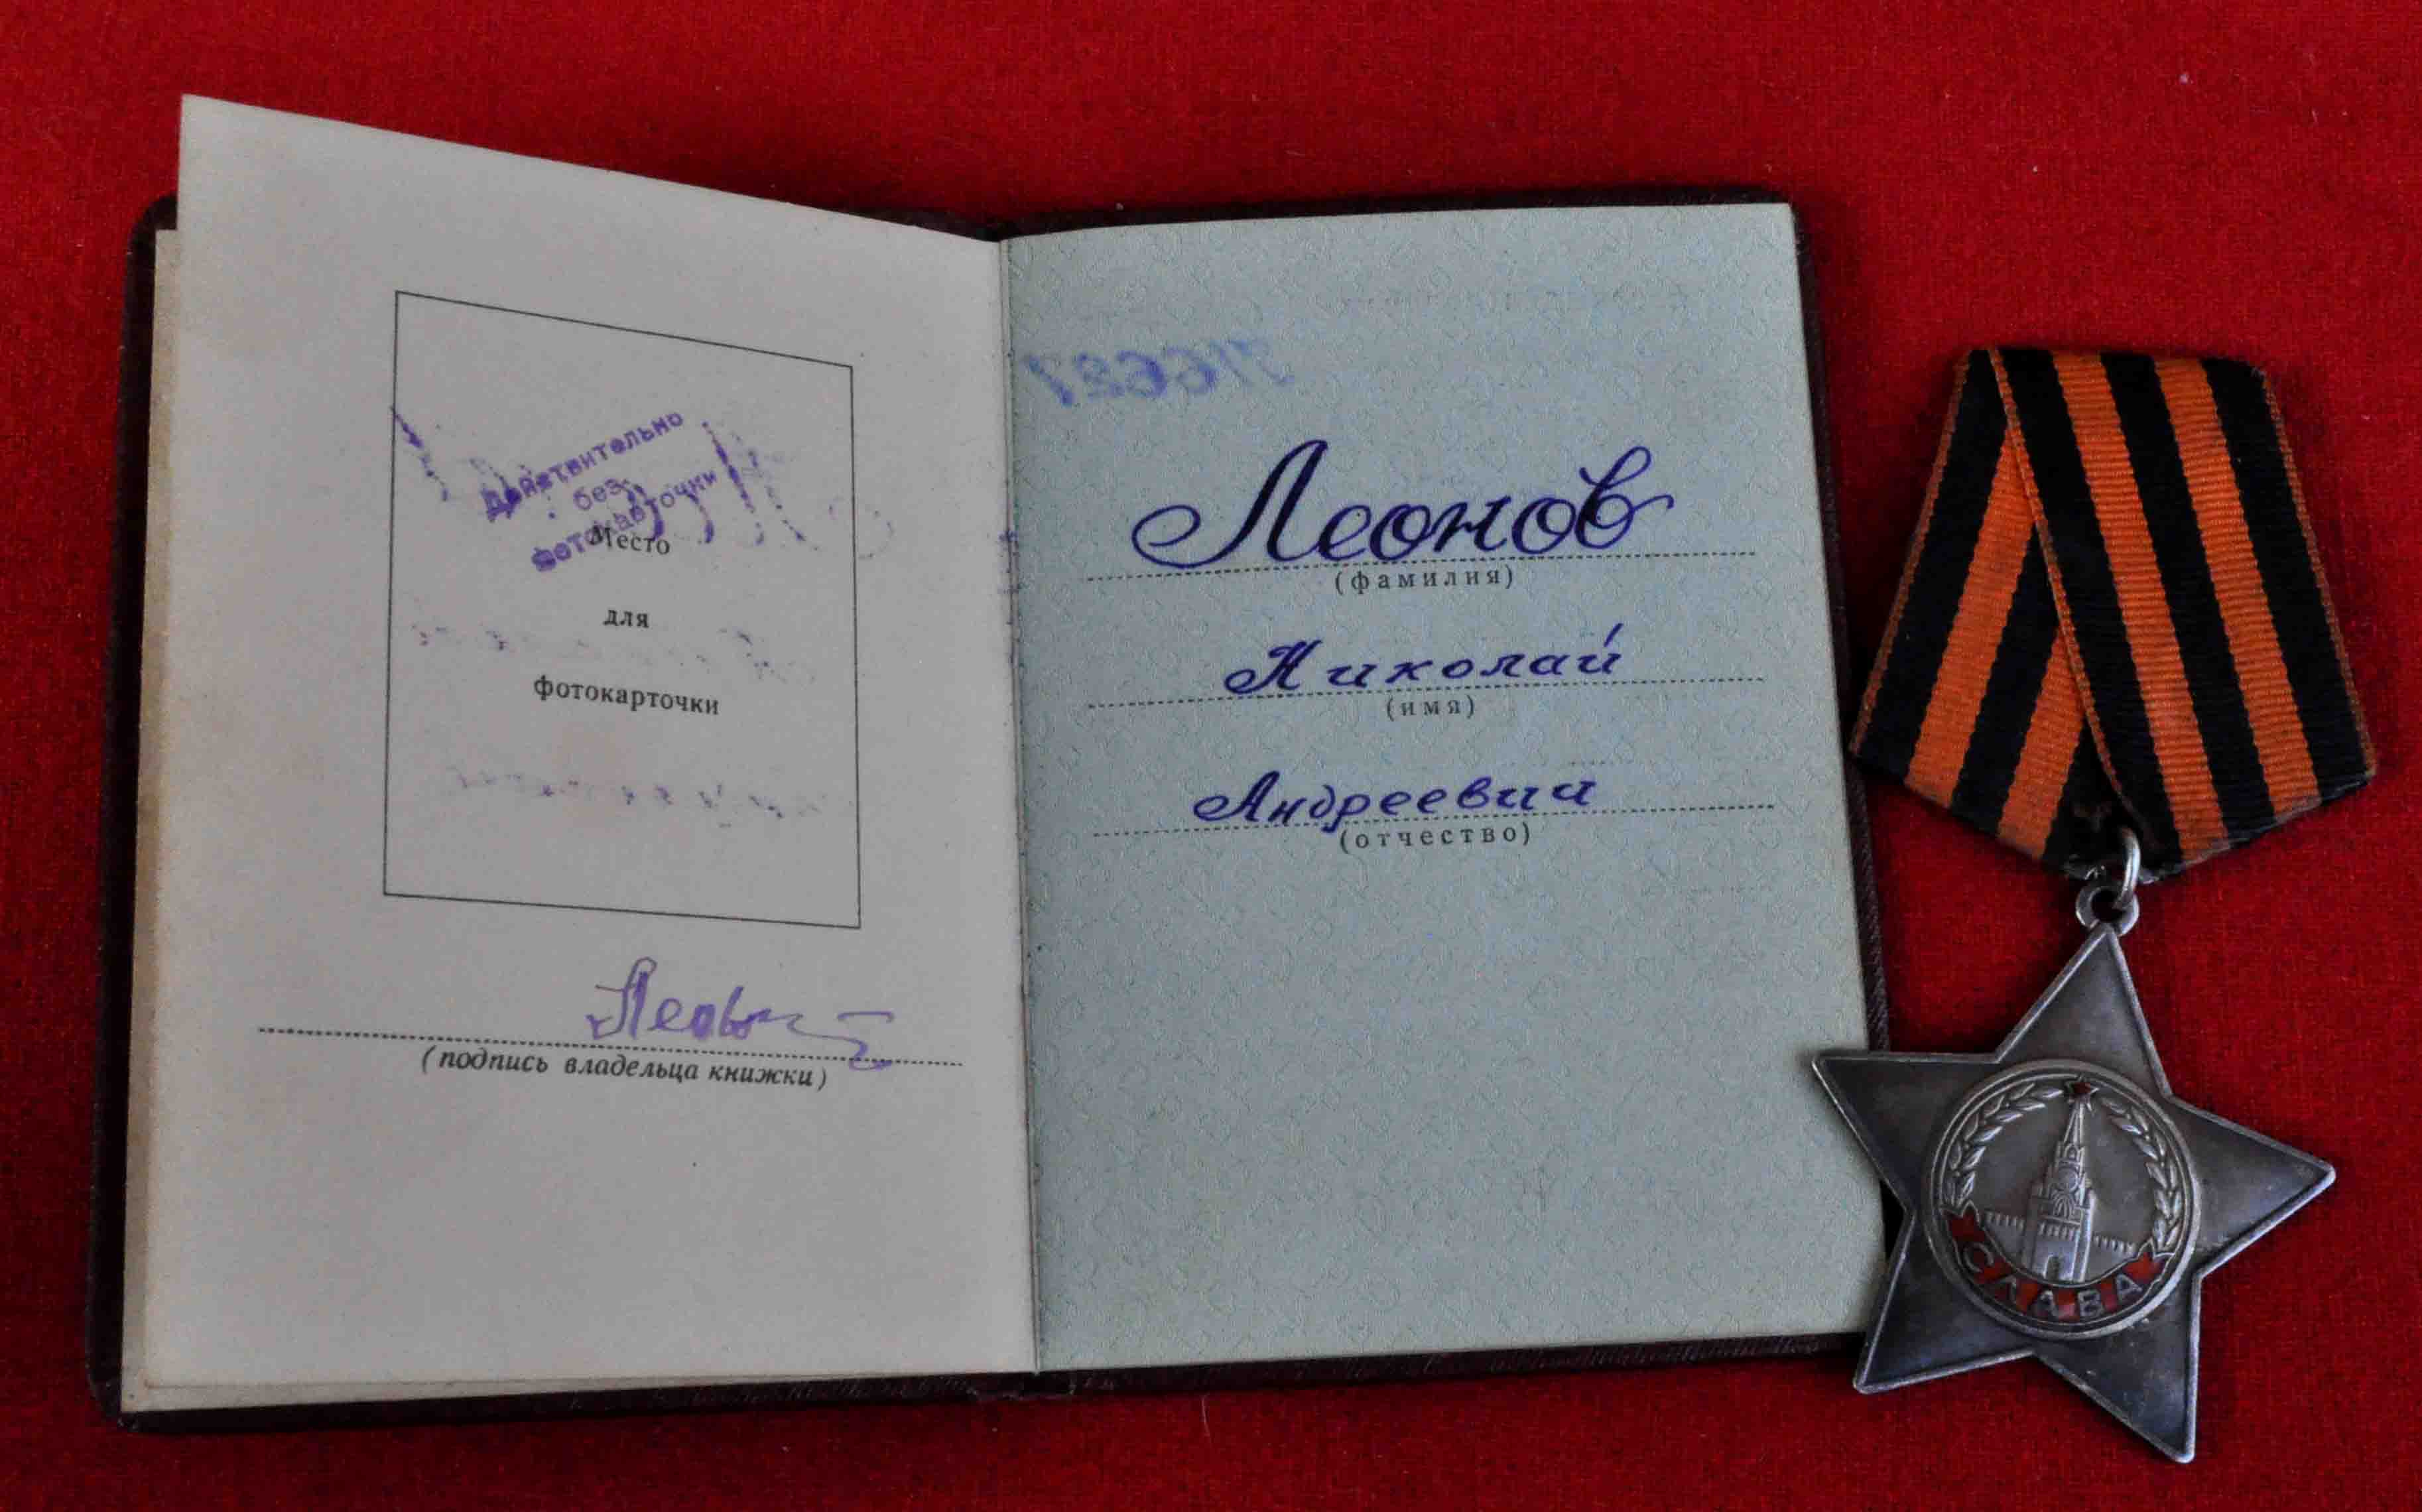 Действительно
без
фотокарточки
Место
для
фотокарточки
(подпись владельца книжки)
Леонов
(фамилия)
Николай
(имя)
Андреевич
(отчество)
СЛАВА